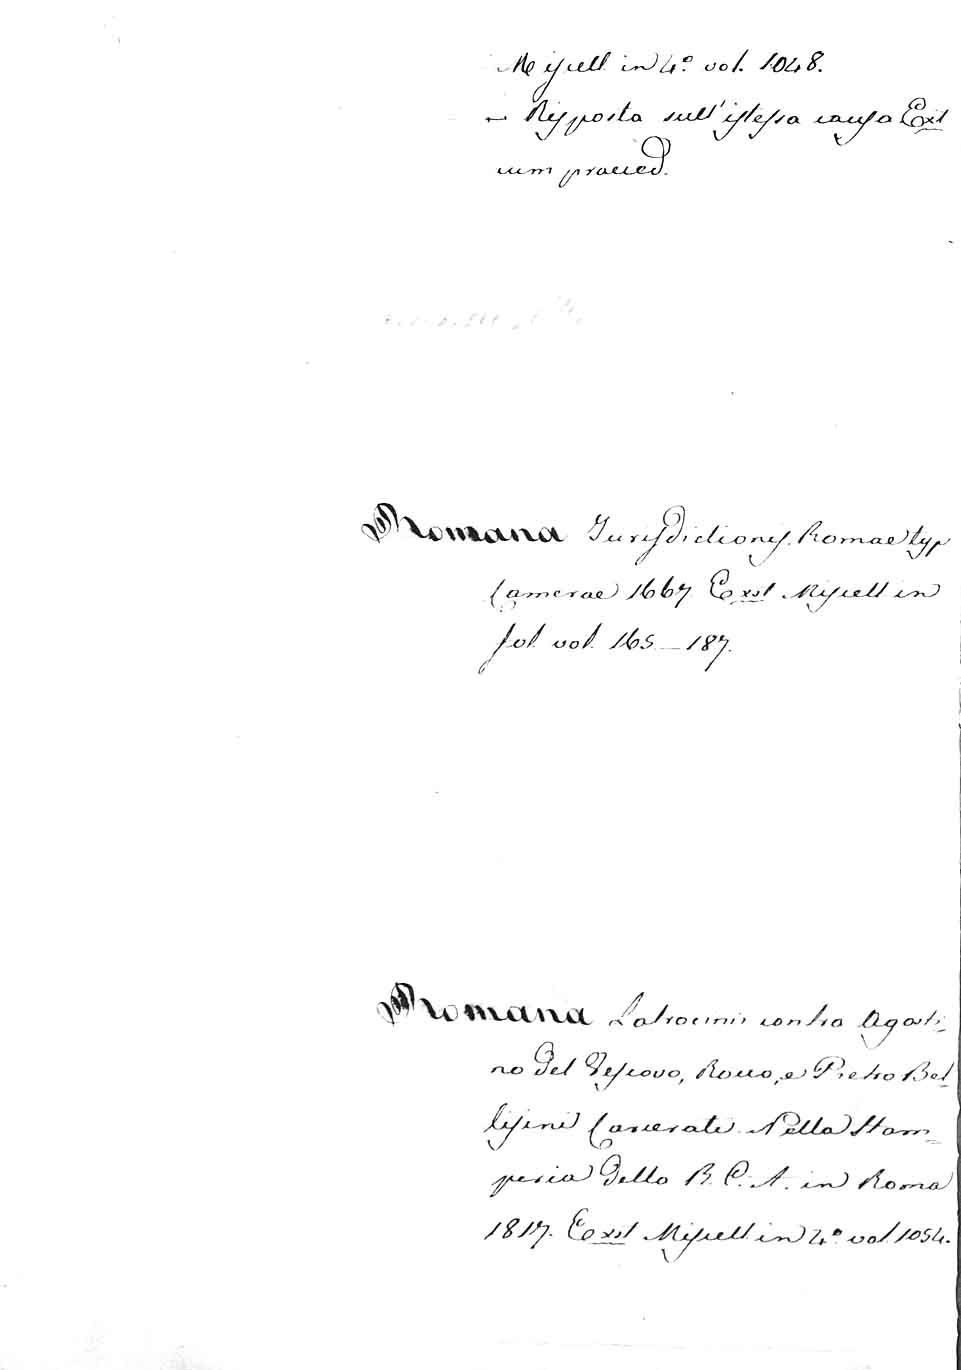 Miscell in 4º vol. 1048.
— Risposta sull'istessa causa Exst
cum praeced.
Romana Jurisdictionis. Romae typ
Camerae 1667 Exst Miscell in
fol. vol. 165—187.
Romana Latrocinii contro Agosti-
no del Vescovo, Rocco, e Pietro Bel-
lisini Carcerati. Nella Stam-
peria della R. C. A. in Roma
1817. Exst Miscell. in 4º vol. 1054.